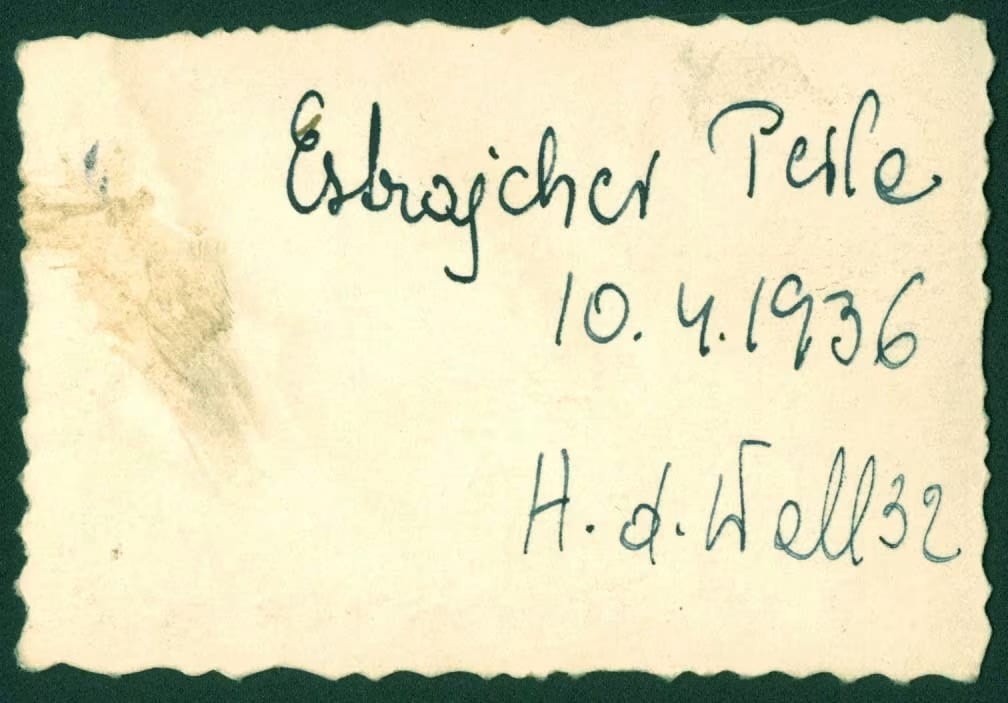 Esbrajcher Perla
10.4.1936
H. d. Wall 32